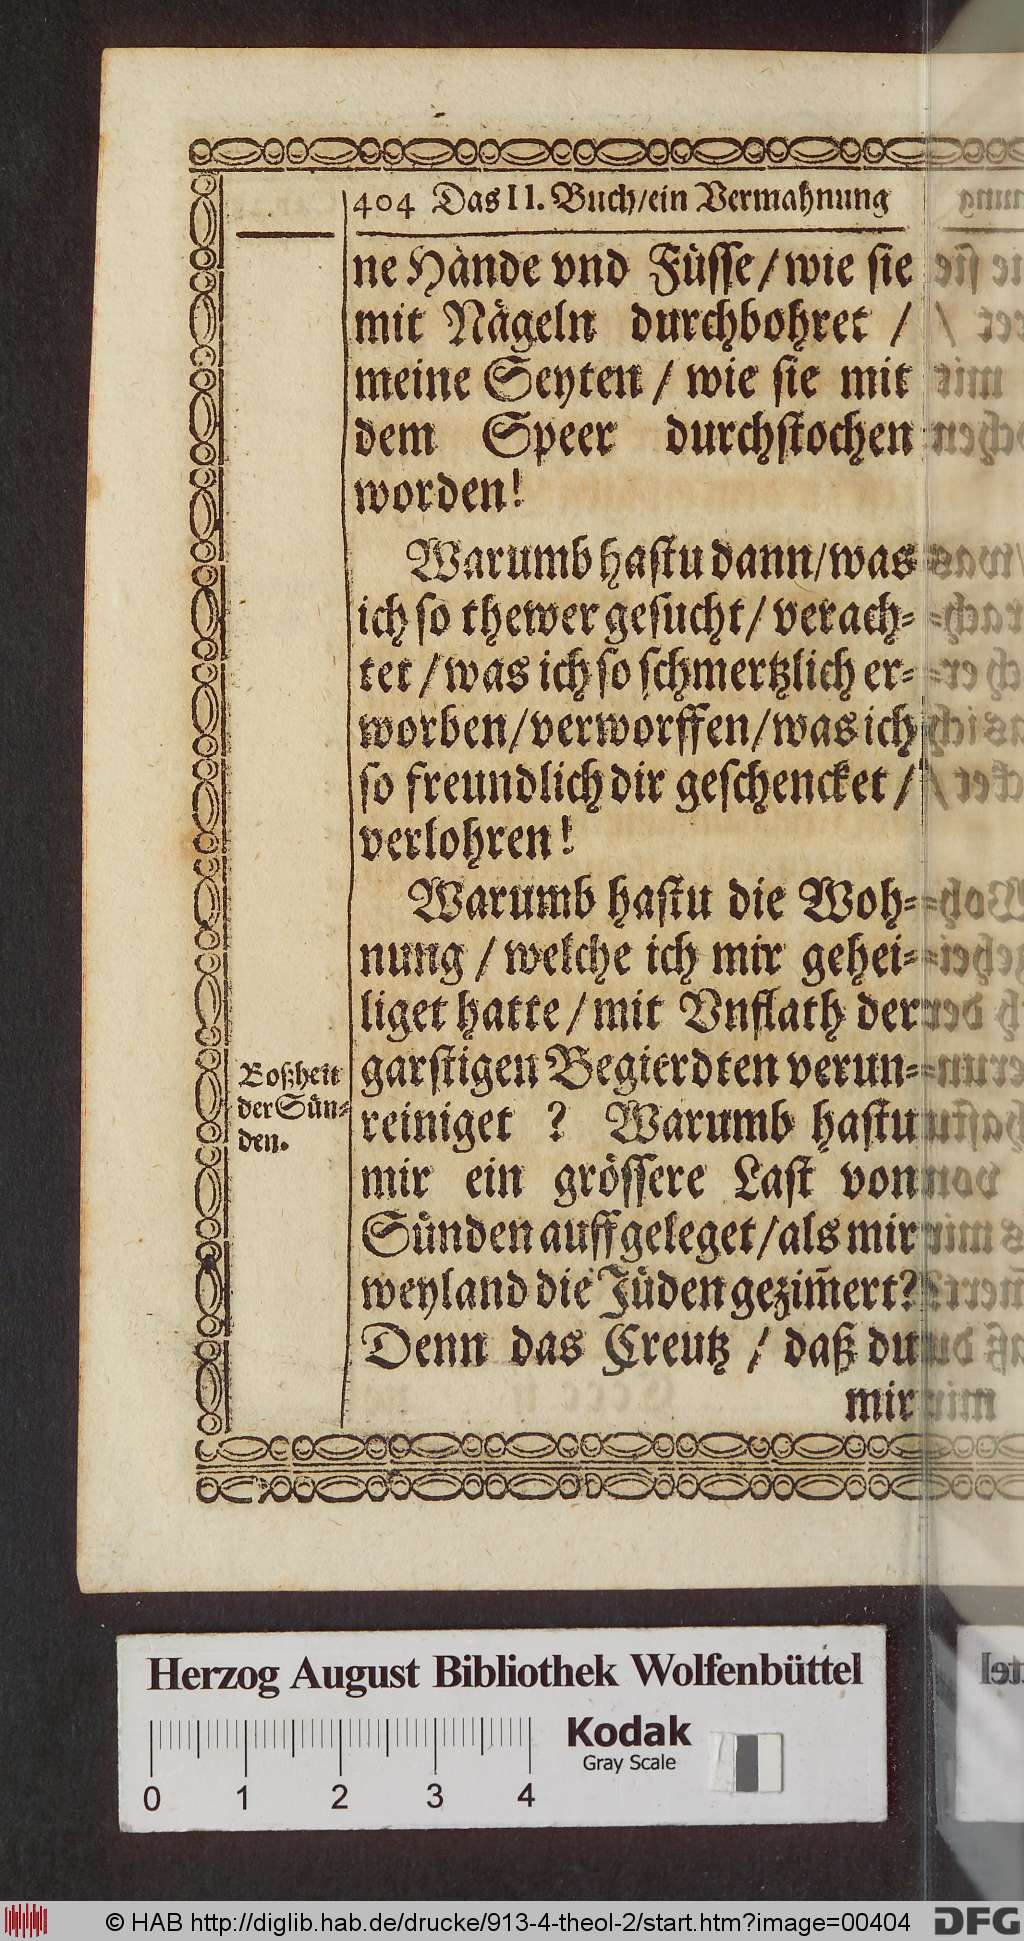 404 Das II. Buch/ein Vermahnung
ne Hände vnd Füsse/wie sie
mit Nägeln durchbohret /
meine Seyten / wie sie mit
dem Speer durchstochen
worden!
Warumb hastu dann/was
ich so thewer gesucht/ verach-
tet / was ich so schmertzlich er-
worben/verworffen/was ich
so freundlich dir geschencket /
verlohren!
Warumb hastu die Woh-
nung / welche ich mir gehei-
liget hatte / mit Vnflath der
garstigen Begierdten verun-
reiniget ? Warumb hastu
mir ein grössere Last von
Sünden auffgeleget/als mir
weyland die Jüden gezim̃ert?
Denn das Creutz / daß du
mir
Boßheit
der Sün-
den.
Herzog August Bibliothek Wolfenbüttel
0 1 2 3 4
Kodak
Gray Scale
© HAB http://diglib.hab.de/drucke/913-4-theol-2/start.htm?image=00404
DFG